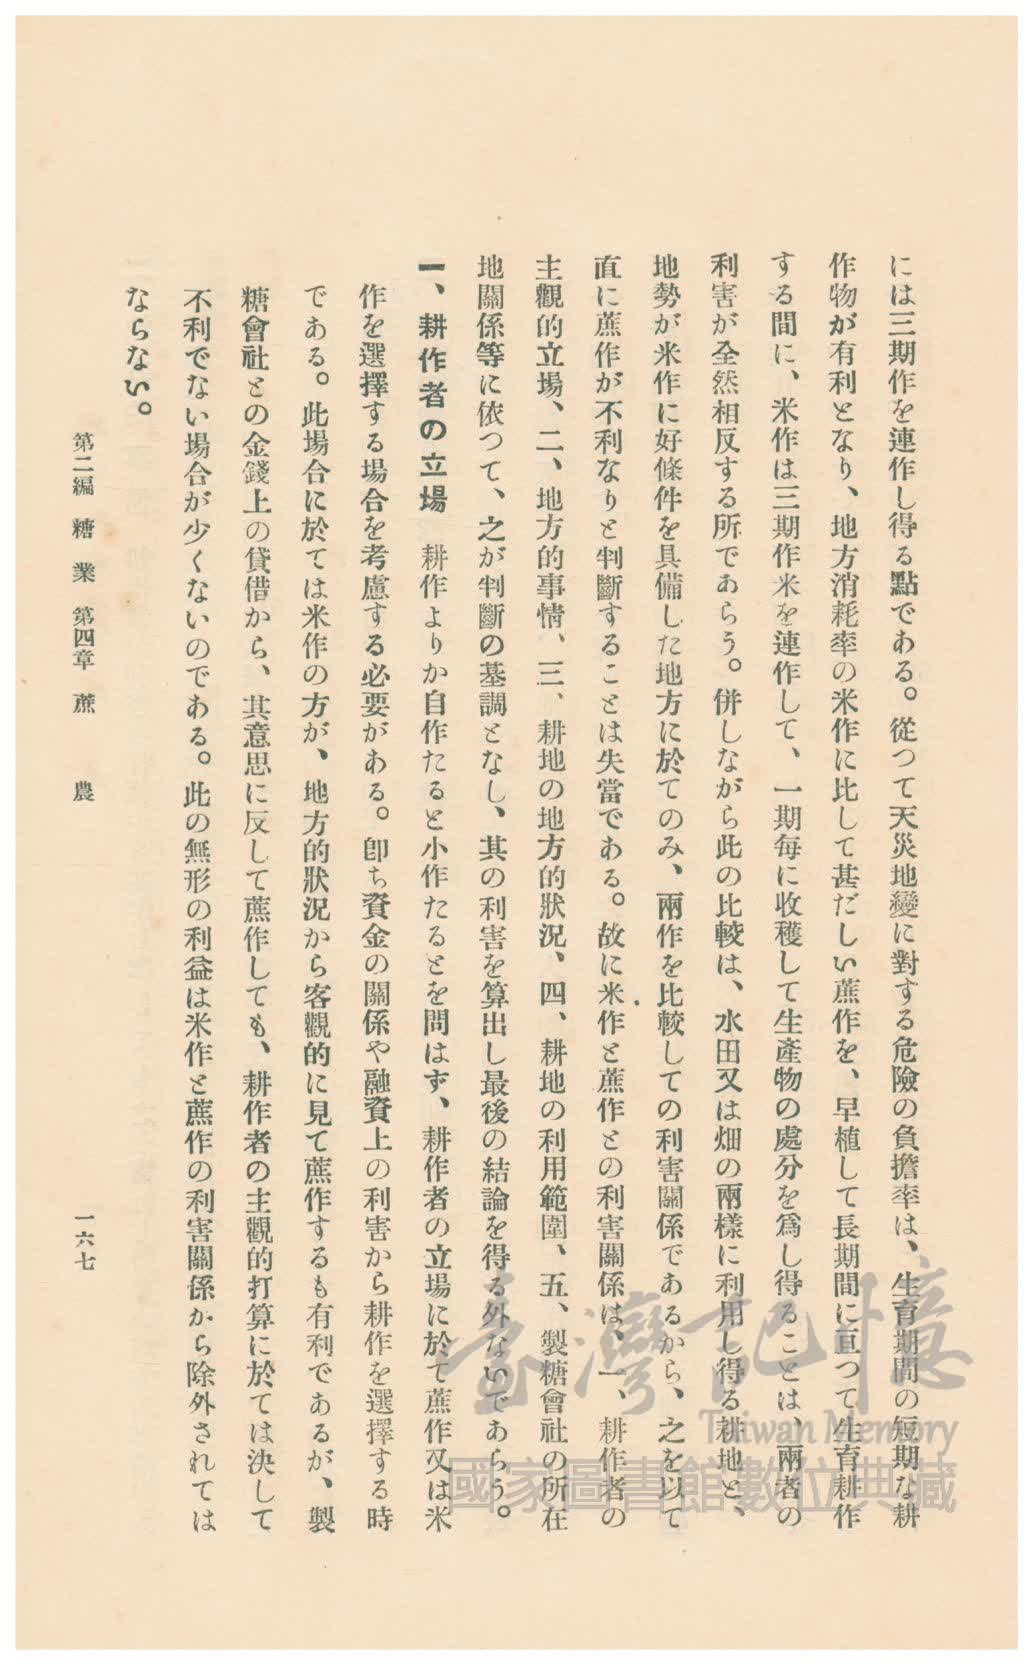 には三期作を連作し得る點である。從つて天災地變に對する危險の負擔率は、生育期間の短期な耕
作物が有利となり、地方消耗率の米作に比して甚だしい蔗作を、早植して長期間に亘つて生育耕作
する間に、米作は三期作米を連作して、一期每に收穫して生產物の處分を爲し得ることは、兩者の
利害が全然相反する所であらう。併しながら此の比較は、水田又は畑の兩樣に利用し得る耕地と、
地勢が米作に好條件を具備した地方に於てのみ、兩作を比較しての利害關係であるから、之を以て
直に蔗作が不利なりと判斷することは失當である。故に米作と蔗作との利害關係は、一、耕作者の
主觀的立場、二、地方的事情、三、耕地の地方的狀況、四、耕地の利用範圍、五、製糖會社の所在
地關係等に依つて、之が判斷の基調となし、其の利害を算出し最後の結論を得る外ないであらう。
一、耕作者の立場　耕作よりか自作たると小作たるとを問はず、耕作者の立場に於て蔗作又は米
作を選擇する場合を考慮する必要がある。卽ち資金の關係や融資上の利害から耕作を選擇する時
である。此場合に於ては米作の方が、地方的狀況から客觀的に見て蔗作するも有利であるが、製
糖會社との金錢上の貸借から、其意思に反して蔗作しても、耕作者の主觀的打算に於ては決して
不利でない場合が少くないのである。此の無形の利益は米作と蔗作の利害關係から除外されては
ならない。
第二編　糖業　第四章　蔗農
一六七
臺灣記憶
Taiwan Memory
國家圖書館數位典藏